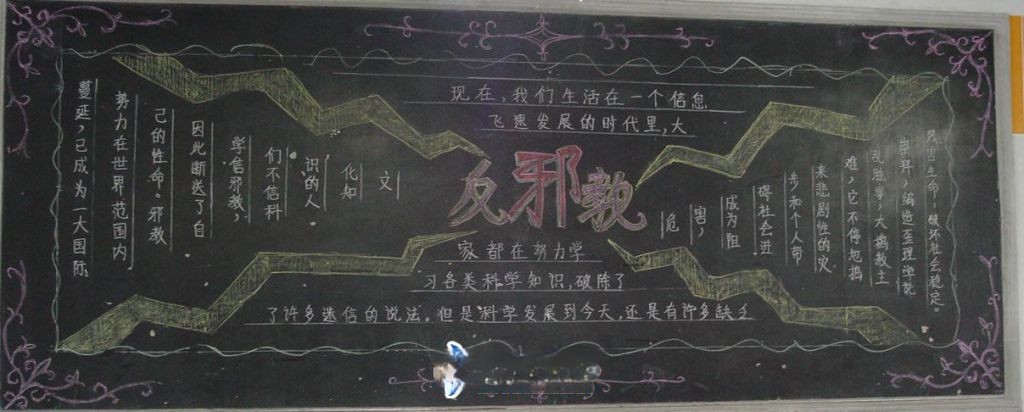 反邪教
现在,我们生活在一个信息
飞速发展的时代里,大
家都在努力学
习各类科学知识,破除了
了许多迷信的说法。但是科学发展到今天,还是有许多缺乏
文
化知
识的人
们不信科
学信邪教,
因此断送了自
己的性命。邪教
势力在世界范围内
蔓延,已成为一大国际
危
害,
成为阻
碍社会进
步和个人带
来悲剧性的灾
难,它不停地捣
乱滋事,大搞教主
崇拜,编造歪理学说
生命,破坏社会稳定。